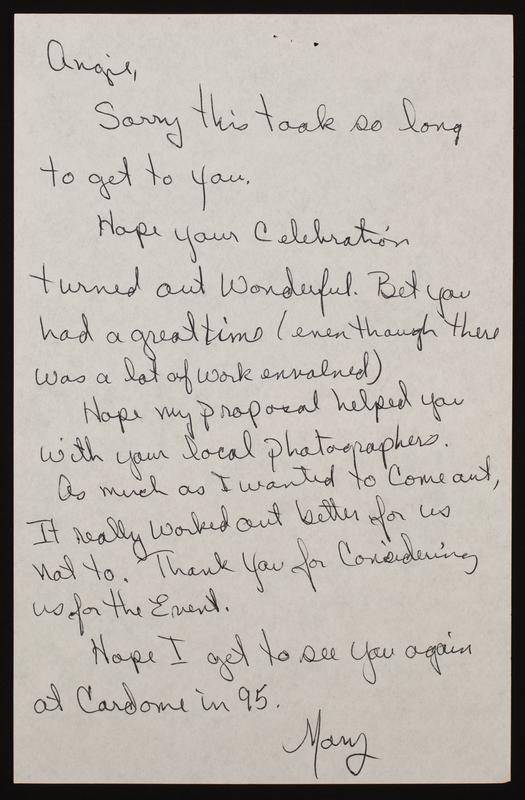 Angie,
Sorry this took so long
to get to you.
Hope your Celebration
turned out Wonderful. Bet you
had a great time (even though there
was a lot of work envolned)
Hope my proposal helped you
with your local photographers.
As much as I wanted to Come out,
It really worked out better for us
not to. Thank You for Considering
us for the Event.
Hope I get to see you again
at Cardome in 95.
Mary